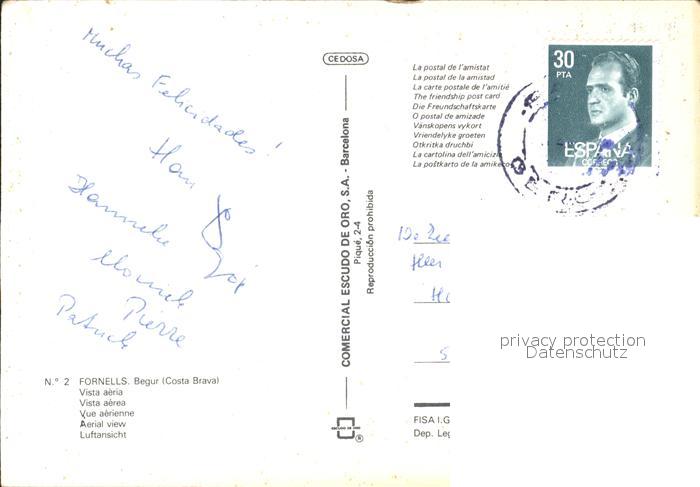 Muchas Felicidades!
Han
Hanneke
Pierre
Patrick
CEDOSA
COMERCIAL ESCUDO DE ORO, S.A. - Barcelona
Piqué, 2-4
Reproducción prohibida
ESCUDO DE ORO
®
La postal de l'amistat
La postal de la amistad
La carte postale de l'amitié
The friendship post card
Die Freundschaftskarte
O postal de amizade
Vänskopens vykort
Vriendelyke groeten
Otkritka druchbi
La cartolina dell'amicizia
La poštkarto de la amikeco
30
PTA
ESPAÑA
CORREOS
De
Heer
privacy protection
Datenschutz
N.° 2 FORNELLS. Begur (Costa Brava)
Vista aèria
Vista aérea
Vue aérienne
Aerial view
Luftansicht
FISA I.G
Dep. Leg